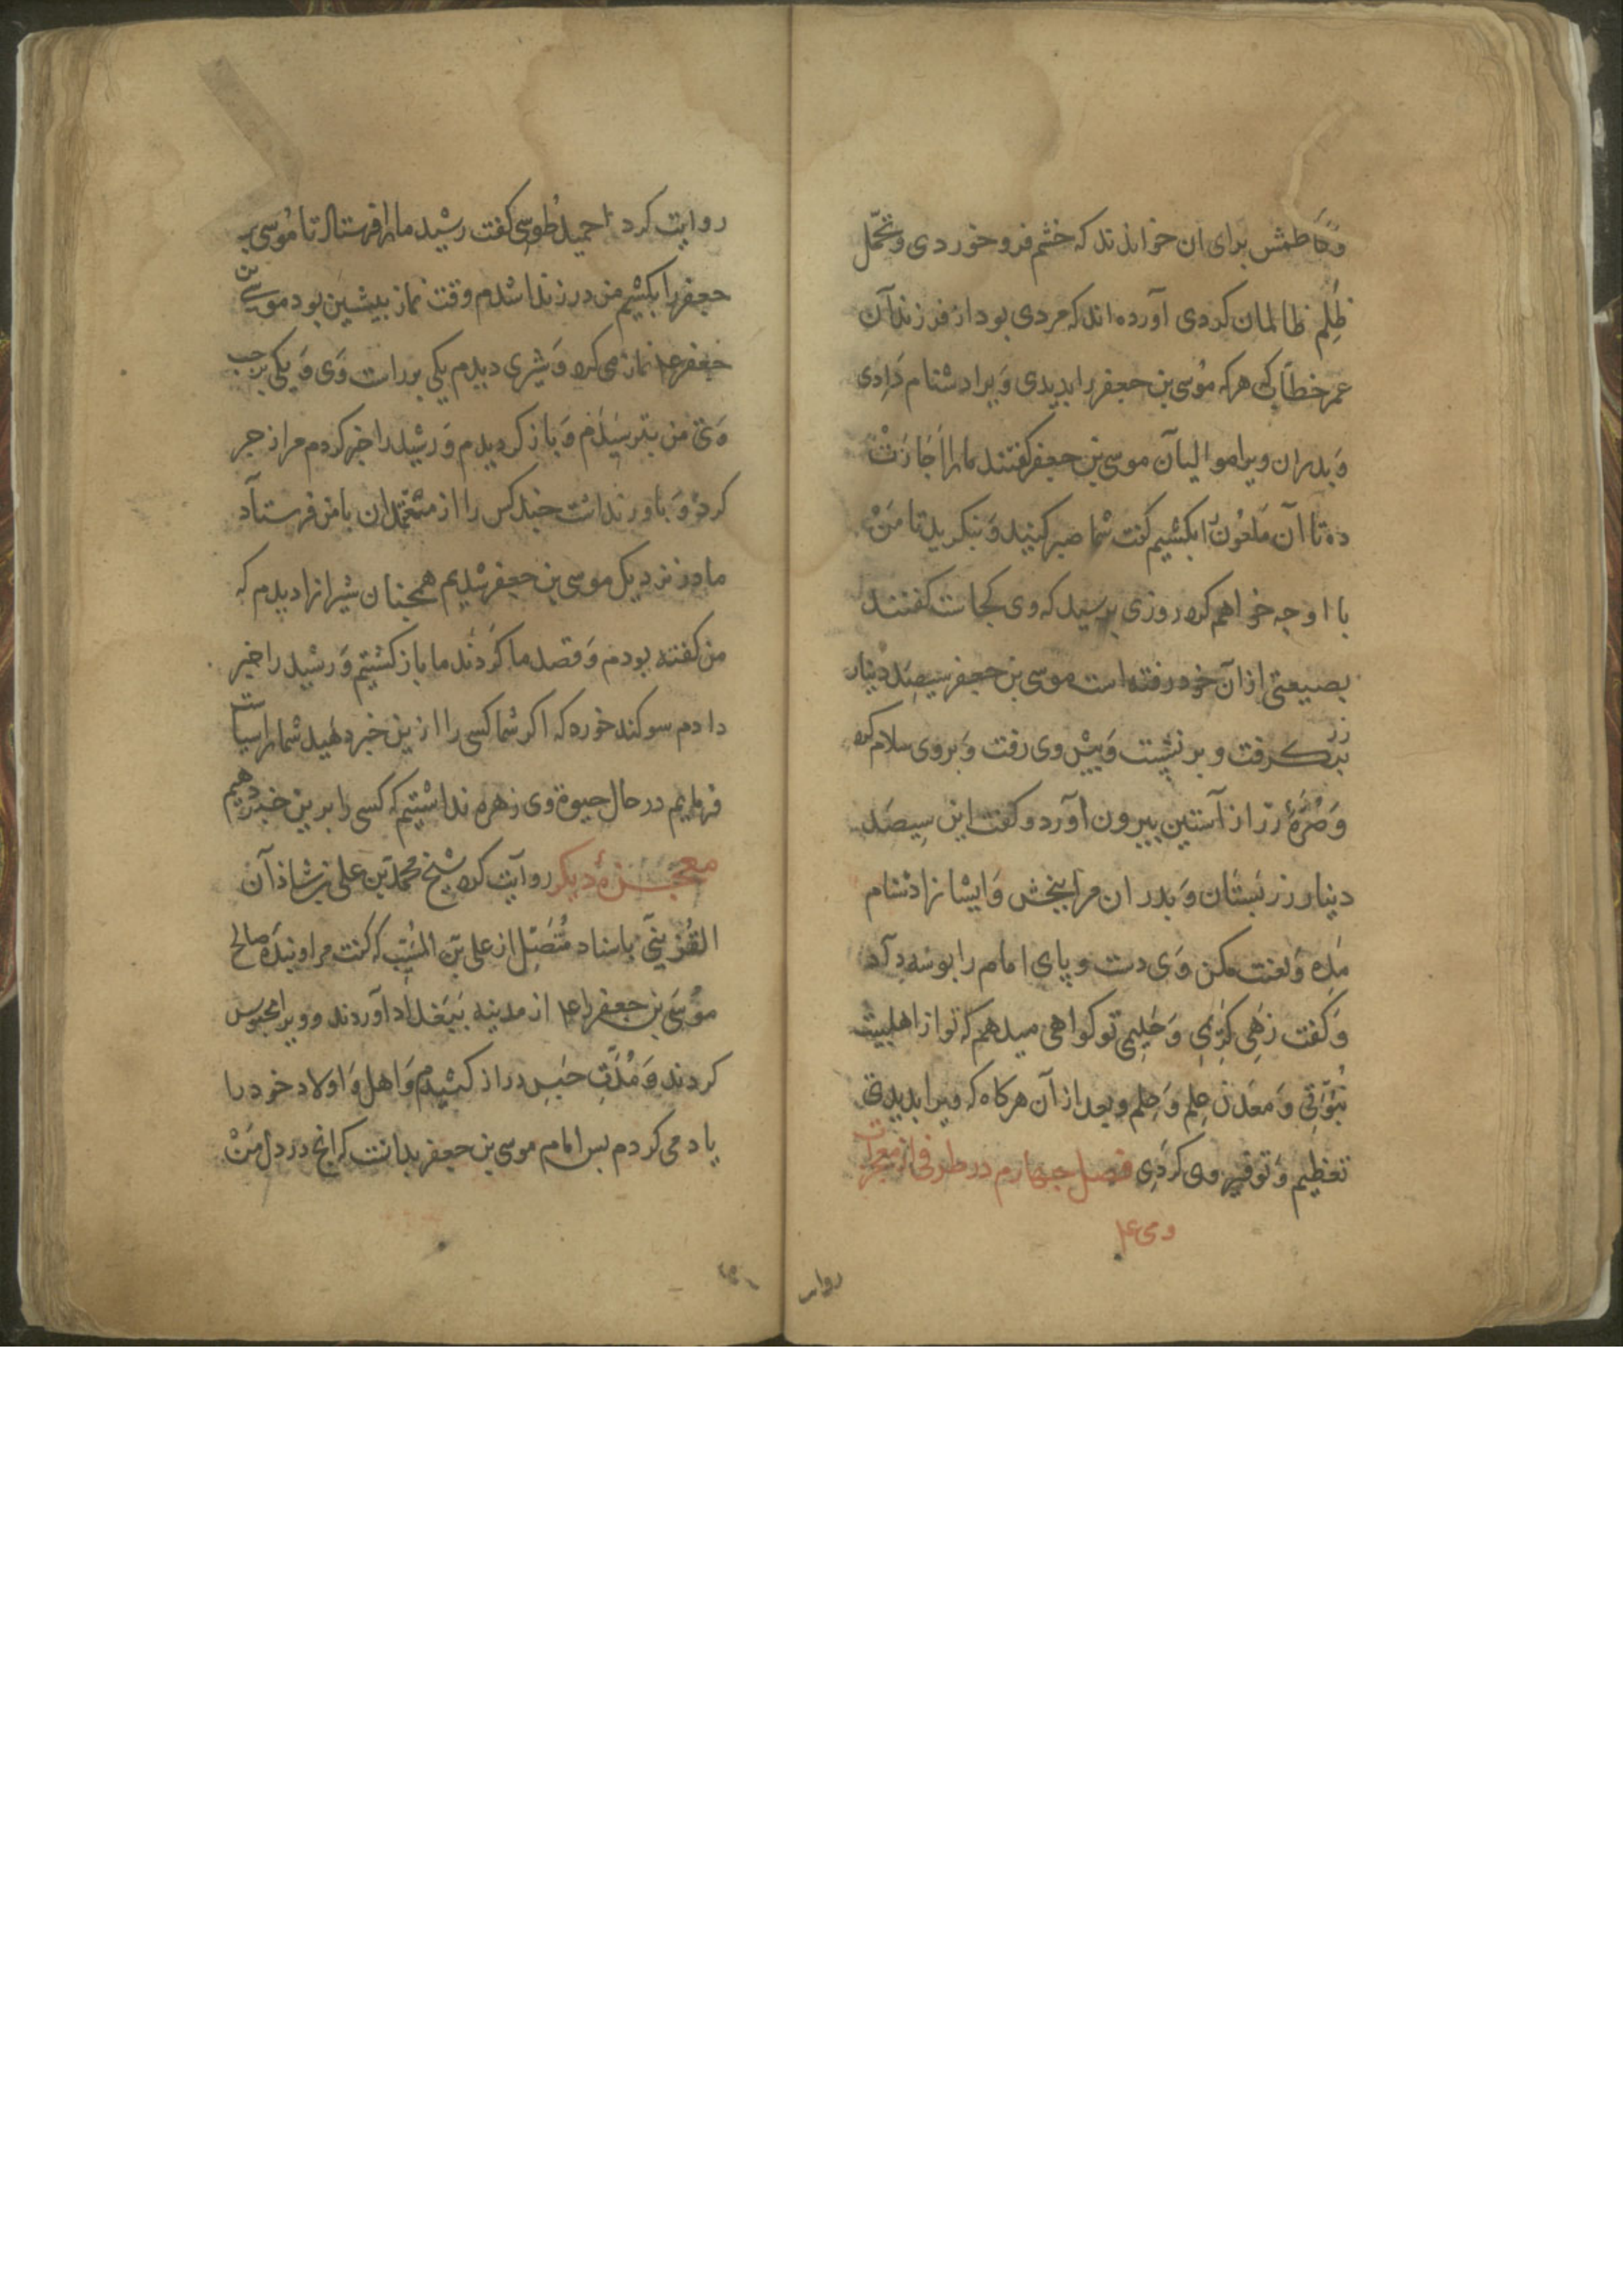 وکاظمش برای آن خوانذند که خشم فرو خوردی و تحمّل
ظُلِم ظالمان کردی آورده اند که مردی بود از فرزندان
عمر خطّاب که هر که مُوسی بن جعفر را بدیدی وَیرا دشنام دَادی
وَ بدران ویرا موالیان موسی بن جعفر کفتند ما را اَجازَتْ
ده تا آن مَلعُون را بکشیم کفت شما صبر کنید وَ بنکرید تا مَنْ
با او چه خواهم کرد روزی برسید که وی کجاست کفتند
بضیعتی از آن خود رفته است موسی بن جعفر سیصَد دینار
زر برکرفت و بر نشست وَ پیش وی رفت وَ بر وی سلام کرد
وَ صُرَّهٔ زر از آستین بیرون آورد و کفت این سِیصَد
دینار زر بستان وَ بدران مرا ببخش وَ ایشانرا دشنام
مَده وَ لعنت مکن وَی دست و پای امام را بوسه داد
وَ کفت زهی کَرَمی وَ حَلیمی تو کواهی میدهم که تو از اهلبیت
نُبُوّتی وَ مَعدَن عِلم وَ حِلم و بعد از آن هر کاه که ویرا بدیدی
تعظیم وَ توقیر وی کردِی فصل جهارم در طرفی از معجزات
وی ع۴
روایت
روایت کرد احمید طُوسِی کفت رشید ما را فرستاد تا مُوسی بن
جعفر را بکشیم من در زندا شدم وقت نماز بیشین بود موسی بن
جعفر ع۴ نماز می کرد وَ شیری دیدم یکی بر راست وَی وَ یکی بر جب
وَی من بترسیدم وَ باز کردیدم وَ رشید را خبر کردم مرا زجر
کرد وَ باور نداشت جند کس را از معتمدان با من فرستاد
ما در نزدیک موسی بن جعفر شدیم همجنان شیرانرا دیدم که
من کفته بودم وَ قصد ما کردند ما باز کشتیم وَ رشید را خبر
دادم سوکند خورد که اکر شما کسی را ازین خبر دهید شما را سیاست
فرمایم در حال حیوة وی زهره نداشتیم که کسی را برین خبر دهیم
معجزهٔ دیکر روایت کرد شیخ محمّد بن علی بن شاذان
القزوینی باسناد مُتّصِل از علی بن المسیّب که کفت مرا و بندهٔ صالح
مُوسَی بن جعفر را ع۴ از مدینه ببغداد آوردند و ویرا محبوس
کردند وَ مُدّتِ حبس دراز کشید وَ اهل وَ اولاد خود را
یاد می کردم بس امام موسی بن جعفر بدانست که انچ در دل مَنْ